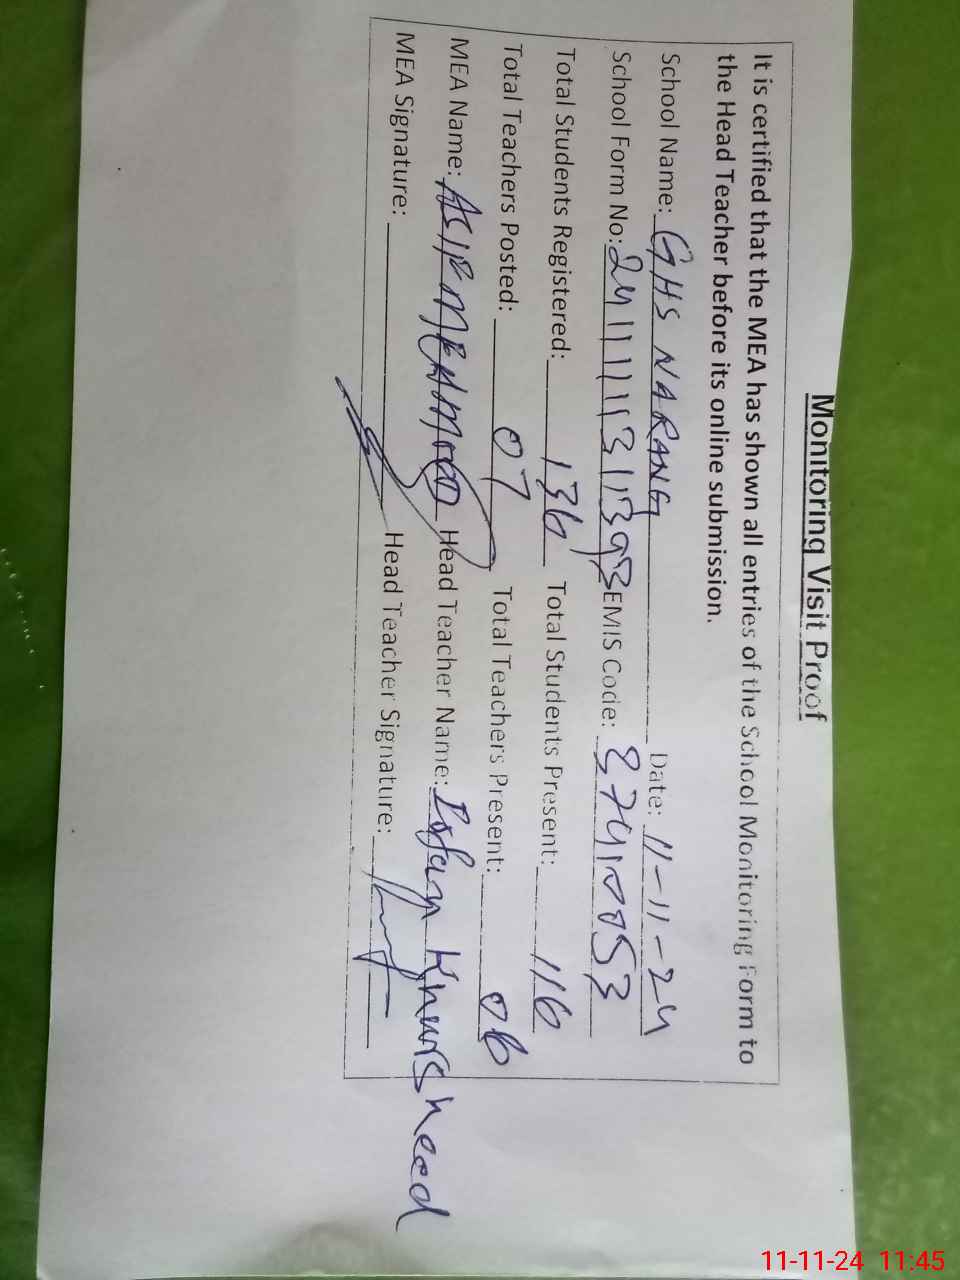 Monitoring Visit Proof
It is certified that the MEA has shown all entries of the School Monitoring Form to
the Head Teacher before its online submission.
School Name: GHS NARANG Date: 11-11-24
School Form No: EMIS Code: 37410053
Total Students Registered: 136 Total Students Present: 116
Total Teachers Posted: 07 Total Teachers Present: 06
MEA Name: Head Teacher Name: Khursheed
MEA Signature: Head Teacher Signature:
11-11-24 11:45